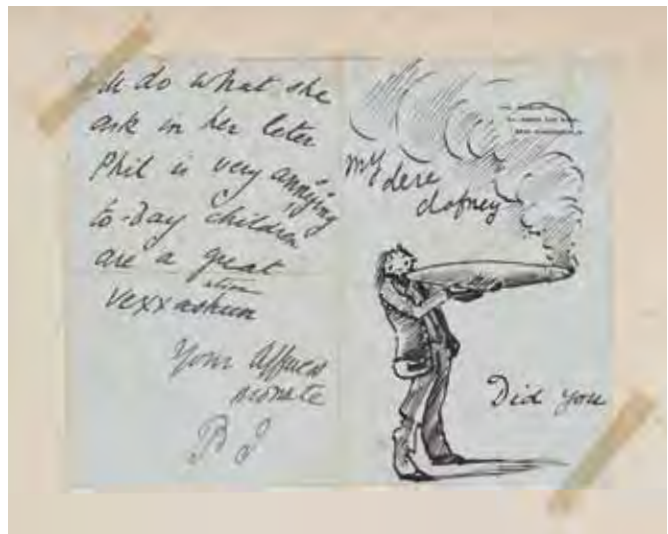 do what she
ask in her leter
Phil is very annoying
to-day children
are a great
ation
vexxashun
Your Affecs
sionate
P J
my dere
dofney
Did you